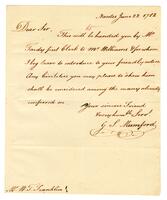 Nantes June 22. 1782
Dear Sir.
This will be handed you by Mr
first Clerk to Mr Williams & Co whom
I beg leave to introduce to your friendly notice
Any Civilities you may please to shew him
shall be considered among the many already
conferred on
Your sincere Friend
G. S. Mumford.
Mr. W. T. Franklin